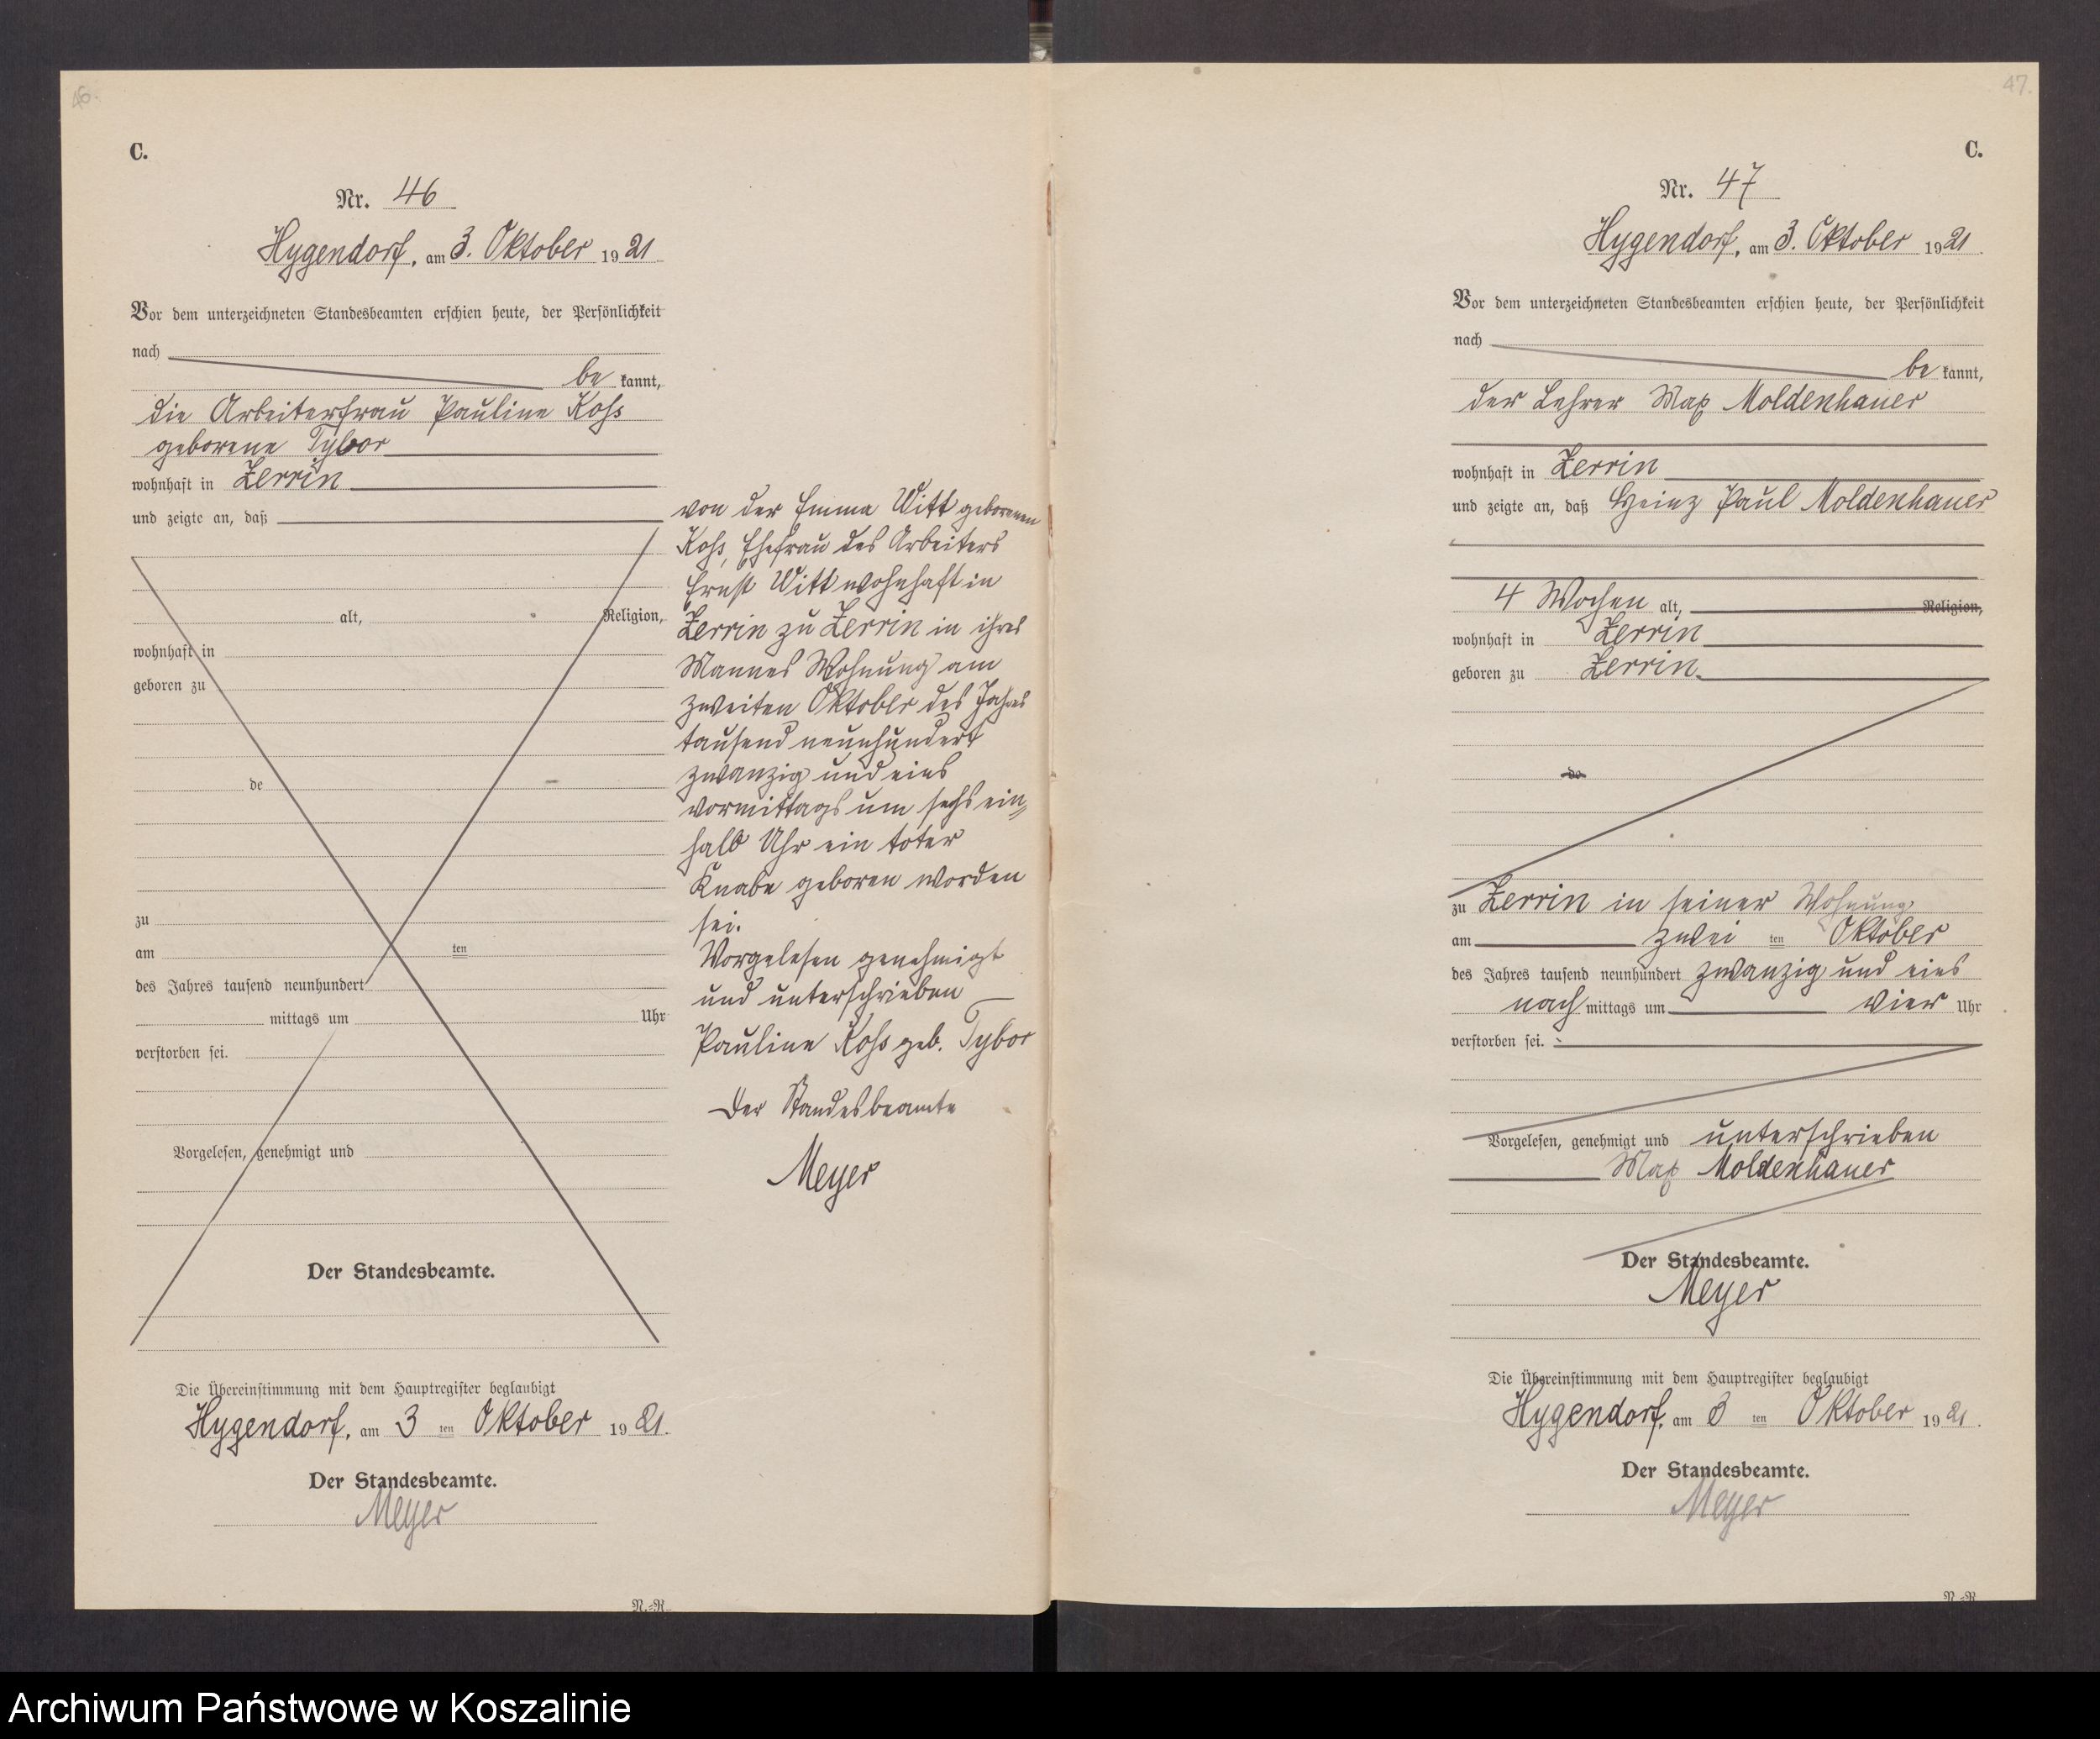 46.
C.
Nr. 46
Hygendorf, am 3. Oktober 1921
Vor dem unterzeichneten Standesbeamten erschien heute, der Persönlichkeit
nach
be kannt,
die Arbeiterfrau Pauline Koss
geborene Tybor
wohnhaft in Zerrin
und zeigte an, daß
alt, Religion,
wohnhaft in
geboren zu
de
zu
am ten
des Jahres tausend neunhundert
mittags um Uhr
verstorben sei.
Vorgelesen, genehmigt und
Der Standesbeamte.
von der Emma Witt geborenen
Koss, Ehefrau des Arbeiters
Ernst Witt wohnhaft in
Zerrin zu Zerrin in ihres
Mannes Wohnung am
zweiten Oktober des Jahres
tausend neunhundert
zwanzig und eins
vormittags um sechs ein-
halb Uhr ein toter
Knabe geboren worden
sei.
Vorgelesen genehmigt
und unterschrieben
Pauline Koss geb. Tybor
Der Standesbeamte
Meyer
Die Übereinstimmung mit dem Hauptregister beglaubigt
Hygendorf, am 3 ten Oktober 1921.
Der Standesbeamte.
Meyer
N.=R.
47.
C.
Nr. 47
Hygendorf, am 3. Oktober 1921.
Vor dem unterzeichneten Standesbeamten erschien heute, der Persönlichkeit
nach
be kannt,
der Lehrer Max Moldenhauer
wohnhaft in Zerrin
und zeigte an, daß Heinz Paul Moldenhauer
4 Wochen alt, Religion,
wohnhaft in Zerrin
geboren zu Zerrin.
de
zu Zerrin in seiner Wohnung
am zwei ten Oktober
des Jahres tausend neunhundert zwanzig und eins
nach mittags um vier Uhr
verstorben sei.
Vorgelesen, genehmigt und unterschrieben
Max Moldenhauer
Der Standesbeamte.
Meyer
Die Übereinstimmung mit dem Hauptregister beglaubigt
Hygendorf, am 3 ten Oktober 1921.
Der Standesbeamte.
Meyer
N.=R.
Archiwum Państwowe w Koszalinie